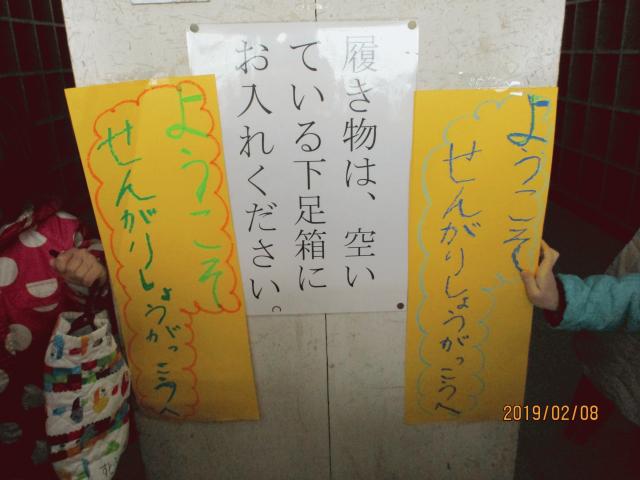 ようこそ
せんがりしょうがっこうへ
履き物は、空い
ている下足箱に
お入れください。
ようこそ
せんがりしょうがっこうへ
2019/02/08